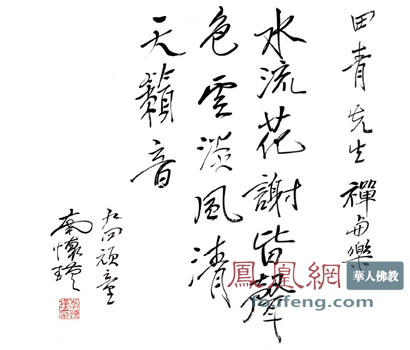 田青先生禪與樂
水流花謝皆聲
色雲淡風清
天籟音
九四頑童
南懷瑾
鳳凰網
ifeng.com
華人佛教